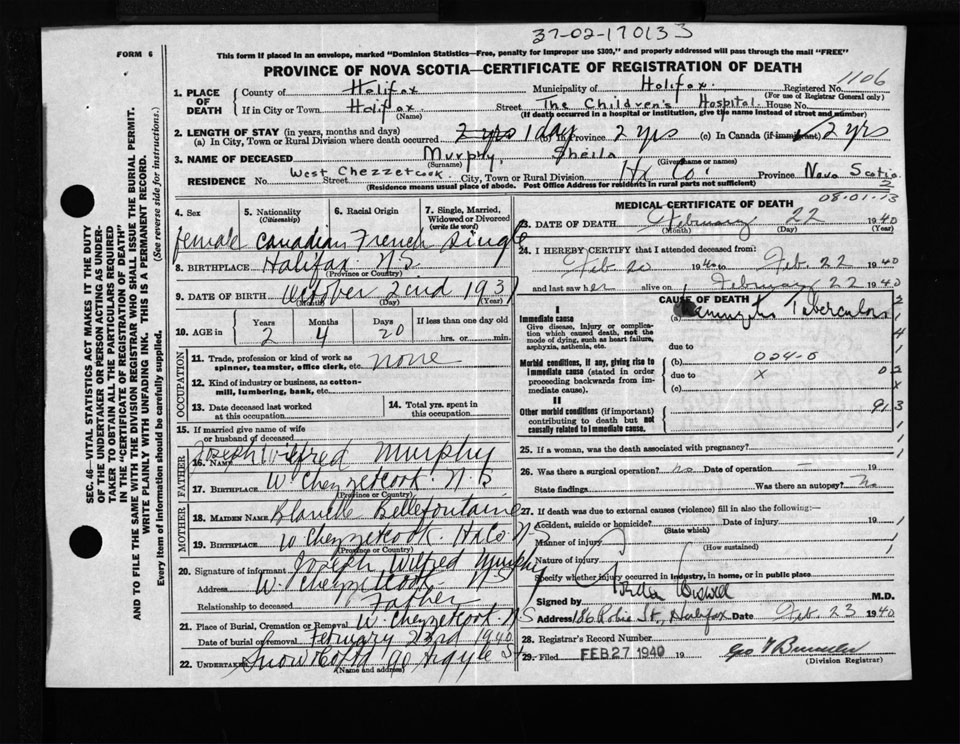 37-02-170133
FORM 6
This form if placed in an envelope, marked "Dominion Statistics—Free, penalty for improper use $300," and properly addressed will pass through the mail "FREE"
PROVINCE OF NOVA SCOTIA—CERTIFICATE OF REGISTRATION OF DEATH
1106
1. PLACE OF DEATH
County of Halifax Municipality of Halifax. Registered No.
(For use of Registrar General only)
If in City or Town Halifax Street The Children's Hospital House No.
(Name) (If death occurred in a hospital or institution, give the name instead of street and number)
2. LENGTH OF STAY (in years, months and days)
(a) In City, Town or Rural Division where death occurred 2 yrs 1 day (b) In Province 2 yrs (c) In Canada (if immigrant) 2 yrs
3. NAME OF DECEASED Murphy, Sheila
(Surname) (Given name or names)
RESIDENCE No. West Chezzetcook Street City, Town or Rural Division Hx Co. Province Nova Scotia
(Residence means usual place of abode. Post Office Address for residents in rural parts not sufficient)
2
08-01-13
4. Sex
5. Nationality (Citizenship)
6. Racial Origin
7. Single, Married, Widowed or Divorced (write the word)
female Canadian French Single
8. BIRTHPLACE Halifax N.S.
(Province or Country)
9. DATE OF BIRTH October 22nd 1937
(Month) (Day) (Year)
10. AGE in Years Months Days If less than one day old
2 4 20 hrs. or min.
OCCUPATION
11. Trade, profession or kind of work as spinner, teamster, office clerk, etc. none
12. Kind of industry or business, as cotton-mill, lumbering, bank, etc.
13. Date deceased last worked at this occupation
14. Total yrs. spent in this occupation
15. If married give name of wife or husband of deceased
FATHER
16. Name Joseph Wilfred Murphy
17. BIRTHPLACE W Chezzetcook. N.S
(Province or Country)
MOTHER
18. MAIDEN NAME Blanche Bellefontaine
19. BIRTHPLACE W Chezzetcook. Hx Co N.S
(Province or Country)
20. Signature of informant Joseph Wilfred Murphy
Address W. Chezzetcook N S
Relationship to deceased Father
21. Place of Burial, Cremation or Removal W Chezzetcook N S
Date of burial or Removal February 23rd 1940
22. UNDERTAKER Snow Co Ltd 90 Argyle St.
(Name and address)
MEDICAL CERTIFICATE OF DEATH
23. DATE OF DEATH February 22 1940
(Month) (Day) (Year)
24. I HEREBY CERTIFY that I attended deceased from:
Feb 20 1940 to Feb. 22 1940
and last saw her alive on February 22 1940
CAUSE OF DEATH
I
Immediate cause
Give disease, injury or complication which caused death, not the mode of dying, such as heart failure, asphyxia, asthenia, etc.
(a) Meningitis Tuberculous
due to
Morbid conditions, if any, giving rise to immediate cause (stated in order proceeding backwards from immediate cause).
(b) 024-0
due to x
(c)
II
Other morbid conditions (if important) contributing to death but not causally related to immediate cause.
913
25. If a woman, was the death associated with pregnancy?
26. Was there a surgical operation? no Date of operation — 19
State findings Was there an autopsy? No
27. If death was due to external causes (violence) fill in also the following:—
Accident, suicide or homicide? Date of injury 19
(State which)
Manner of injury
(How sustained)
Nature of injury
Specify whether injury occurred in industry, in home, or in public place
Signed by M.D.
Address 186 Robie St., Halifax Date Feb. 23 1940
28. Registrar's Record Number
29. Filed FEB 27 1940 19
(Division Registrar)
SEC. 46—VITAL STATISTICS ACT MAKES IT THE DUTY
OF THE UNDERTAKER OR PERSON ACTING AS UNDERTAKER TO OBTAIN ALL THE PARTICULARS REQUIRED
IN THE "CERTIFICATE OF REGISTRATION OF DEATH"
AND TO FILE THE SAME WITH THE DIVISION REGISTRAR WHO SHALL ISSUE THE BURIAL PERMIT.
WRITE PLAINLY WITH UNFADING INK. THIS IS A PERMANENT RECORD.
Every item of information should be carefully supplied. (See reverse side for instructions.)